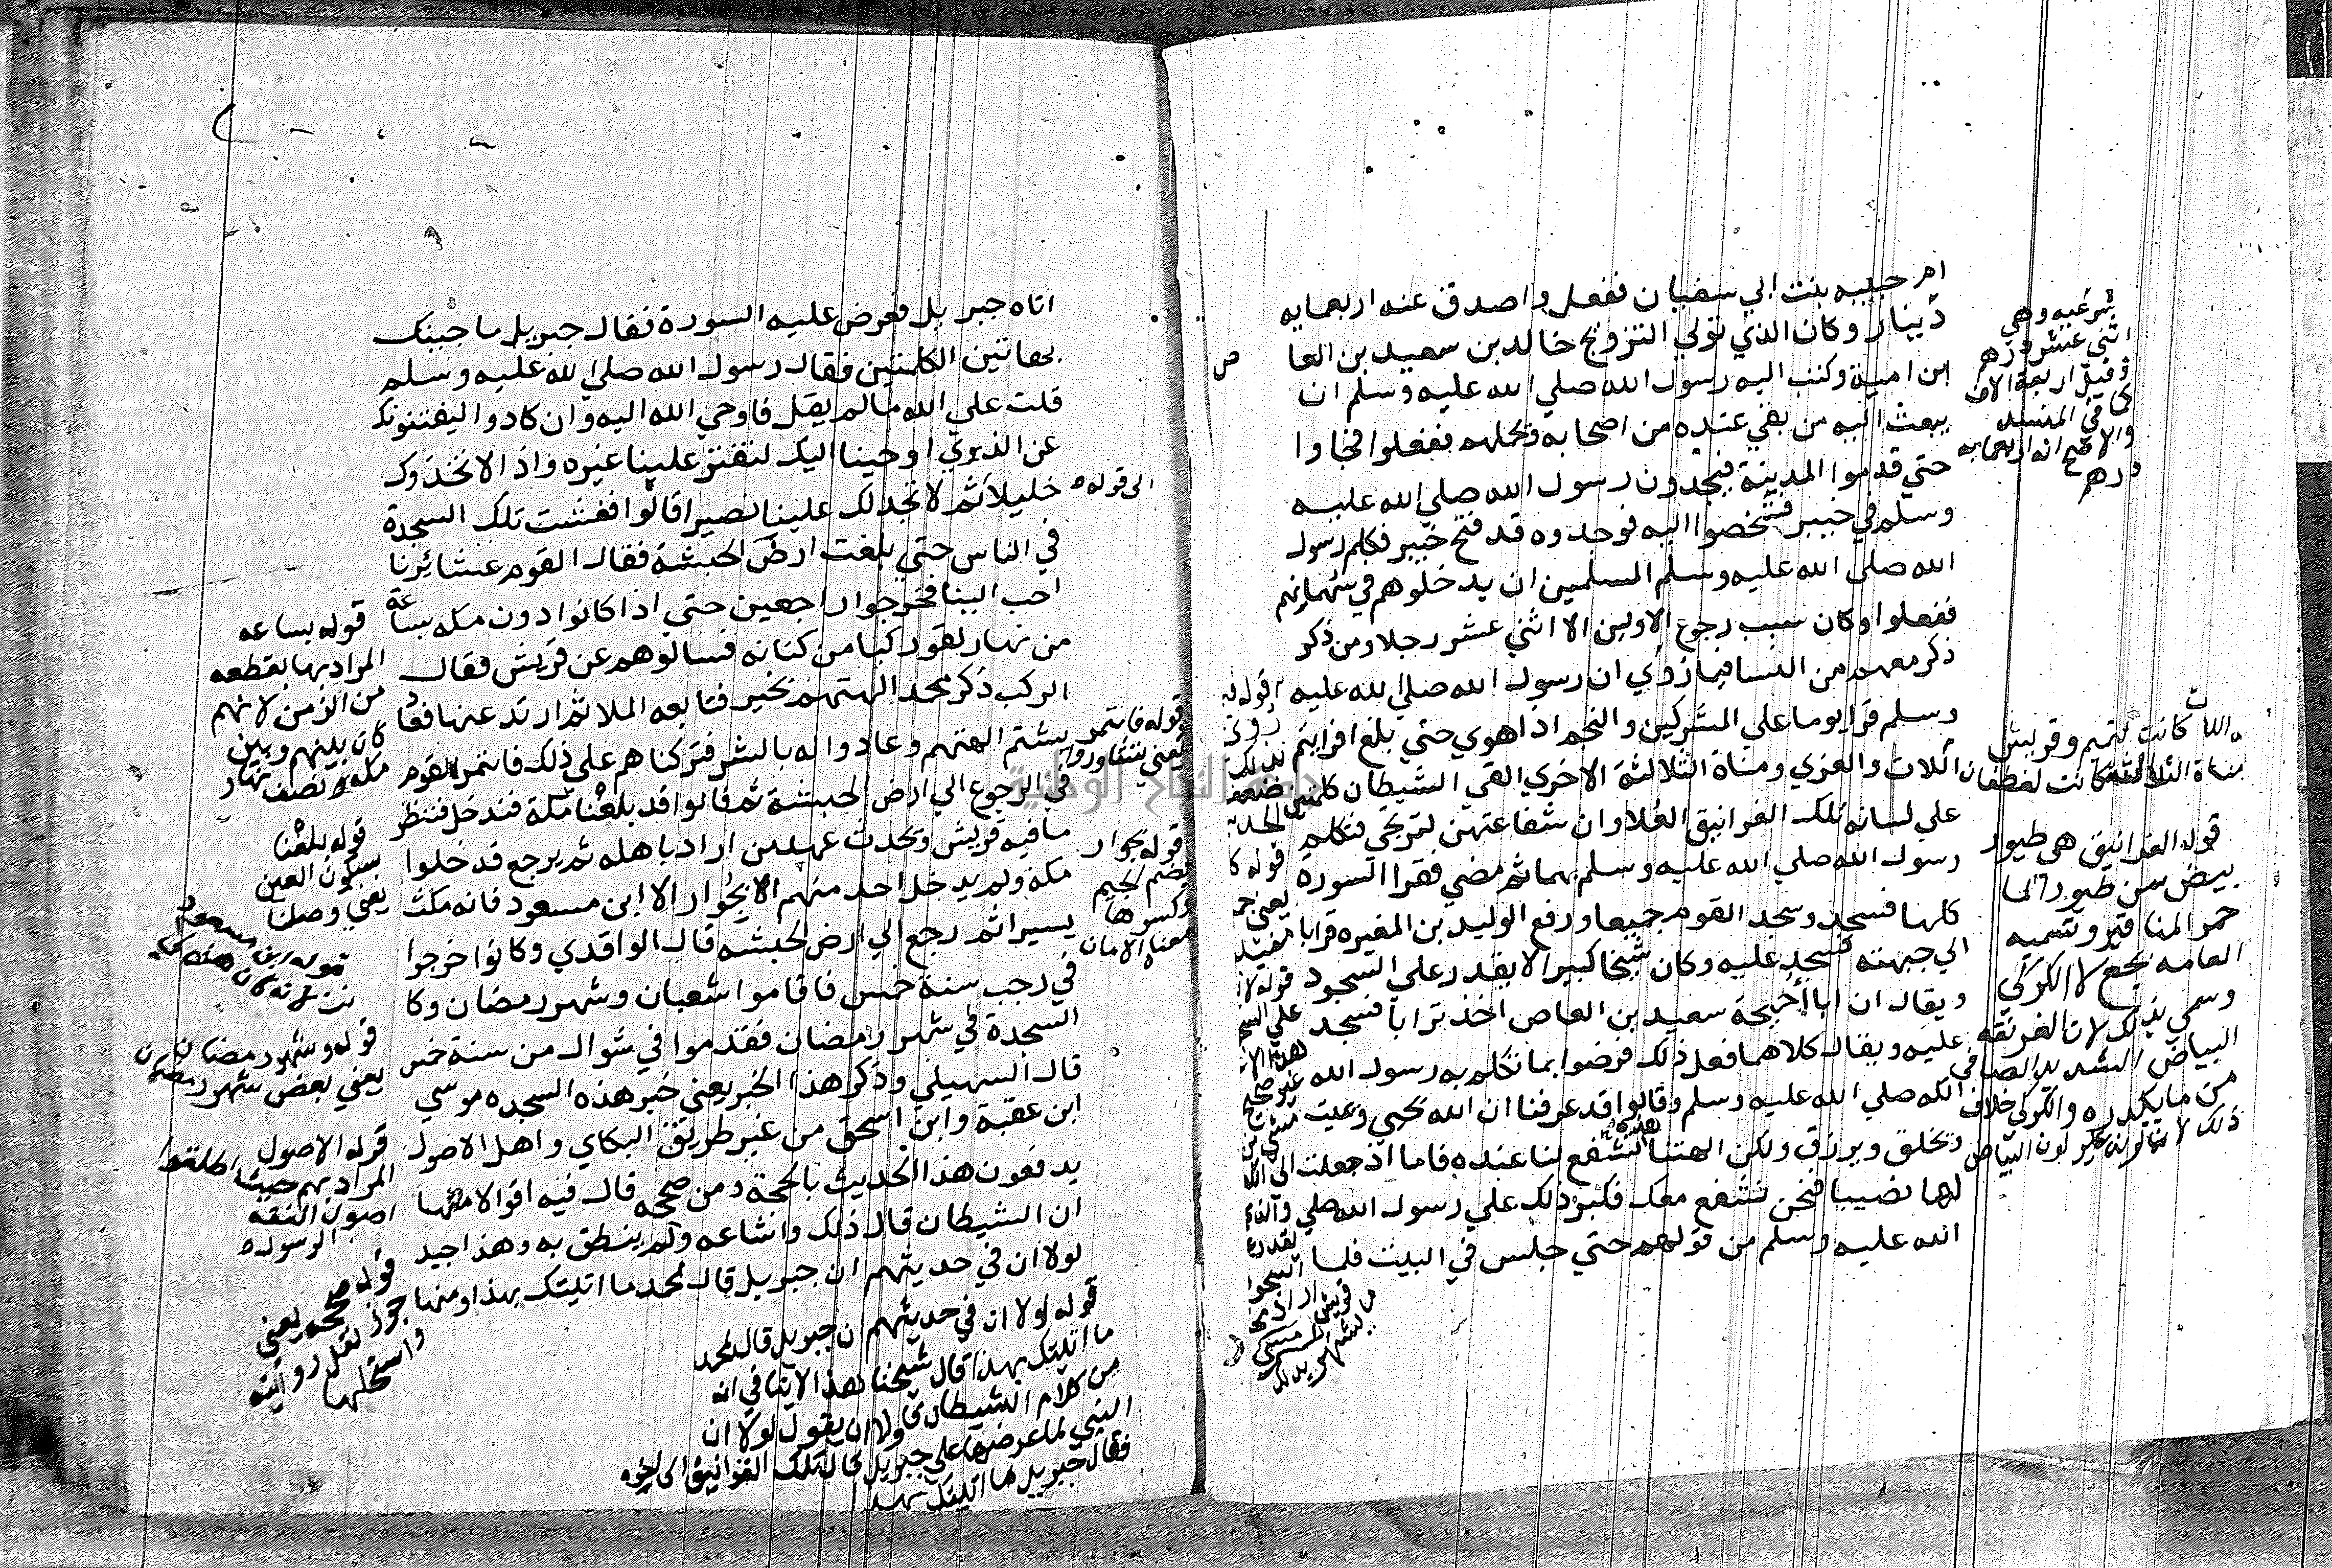 ام حبيبه بنت ابي سفيان ففعل واصدق عنه اربعمايه
دينار وكان الذي تولي التزويج خالد بن سعيد بن العا
ص
ابن امية وكتب اليه رسول الله صلي الله عليه وسلم ان
يبعث اليه من بقي عنده من اصحابه وحملهم ففعلوا فجاوا
حتي قدموا المدينة فيجدون رسول الله صلي الله عليه
وسلم في خيبر فشخصوا اليه فوجدوه قد فتح خيبر فكلم رسول
الله صلي الله عليه وسلم المسلمين ان يدخلوهم في سهمانهم
ففعلوا وكان سبب رجوع الاولين الا اثني عشر رجلا ومن ذكر
ذكر معهم من النسا فيما روي ان رسول الله صلي الله عليه
وسلم قرا يوما علي المشركين والنجم اذا هوي حتي بلغ افرايتم
اللات والعزي ومناة الثالثة الاخري القي الشيطان كلمتين
علي لسانه تلك الغرانيق العلا وان شفاعتهن لترتجي فتكلم
رسول الله صلي الله عليه وسلم بهما ثم مضي فقرا السورة
كلها فسجد وسجد القوم جميعا ورفع الوليد بن المغيره ترابا
الي جبهته فسجد عليه وكان شيخا كبيرا لا يقدر علي السجود
ويقال ان ابا احيحة سعيد بن العاص اخذ ترابا فسجد
عليه ويقال كلاهما فعل ذلك فرضوا بما تكلم به رسول الله
صلي الله عليه وسلم وقالوا قد عرفنا ان الله يحيي ويميت
ويخلق ويرزق ولكن الهتنا هذه تشفع لنا عنده فاما اذ جعلت
لها نصيبا فنحن نشفع معك فكبر ذلك علي رسول الله صلي
الله عليه وسلم من قولهم حتي جلس في البيت فلما
بشر غيه وهي
اثني عشر درهم
وقيل اربعة الاف
كما في المسند
والاصح انه اربعمايه
درهم
اللات كانت لتميم وقريش
مناة الثالثة كانت لغطفان
قوله الغرانيق هي طيور
بيض من طيور الما
حمر المناقير وتسميه
العامه بجع لا الكركي
وسمي بذلك لان الغرنقه
البياض الشديد الصافي
من ما يكدره والكركي خلاف
ذلك لان لونه غير لون البياض
اتاه جبريل فعرض عليه السورة فقال جبريل ما جيتك
بهاتين الكلمتين فقال رسول الله صلي الله عليه وسلم
قلت علي الله ما لم يقل فاوحي الله اليه وان كادوا ليفتنونك
عن الذي اوحينا اليك لتفتري علينا غيره واذا لاتخذوك
خليلا ثم لا تجد لك علينا نصيرا قالوا ففشت تلك السجدة
في الناس حتي بلغت ارض الحبشة فقال القوم عشائرنا
احب الينا فخرجوا راجعين حتي اذا كانوا دون مكه بساعة
من نهار لقوا ركبا من كنانه فسالوهم عن قريش فقال
الركب ذكر محمد الهتهم بخير فتابعه الملا ثم ارتد عنها فعاد
بشتم الهتهم وعادوا له بالشر فتركناهم علي ذلك فاتمر القوم
في الرجوع الي ارض الحبشة ثم قالوا قد بلغنا مكة فندخل فننظر
ما فيه قريش ويحدث عهدا من اراد باهله ثم يرجع فدخلوا
مكة ولم يدخل احد منهم الا بجوار الا ابن مسعود فانه مكث
يسيرا ثم رجع الي ارض الحبشه قال الواقدي وكانوا خرجوا
في رجب سنة خمس فاقاموا شعبان وشهر رمضان وكا
السجدة في شهر رمضان فقدموا في شوال من سنة خمس
قال السهيلي وذكر هذا الخبر يعني خبر هذه السجده موسي
ابن عقبة وابن اسحق من غير طريق البكاي واهل الاصول
يدفعون هذا الحديث بالحجة ومن صححه قال فيه اقوالا منها
ان الشيطان قال ذلك واشاعه ولم ينطق به وهذا جيد
لولا ان في حديثهم ان جبريل قال لمحمد ما اتيتك بهذا ومنها
الي قوله
قوله فاتمر
يعني يتشاوروا
قوله بجوار
بضم الجيم
وكسرها
معناه الامان
قوله بساعه
المراد بها بقطعه
من الزمن لانهم
كان بينهم وبين
مكه نصف نهار
قوله بلغنا
بسكون الغين
يعني وصلنا
قوله ابن مسعود
قوله وشهر رمضان
يعني بعض شهر رمضان
قوله الاصول
المراد بهم حيث اطلقوا
اصول الفقه
قوله صححه يعني
جوز نقل روايته
واستحلها
قوله لولا ان في حديثهم ان جبريل قال لمحمد
ما اتيتك بهذا قال شيخنا هذا لا ينافي انه
من كلام الشيطان ولان يقول لولا ان
النبي لما عرضها علي جبريل قال تلك الغرانيق الي اخره
فقال جبريل ما اتيتك بهذا